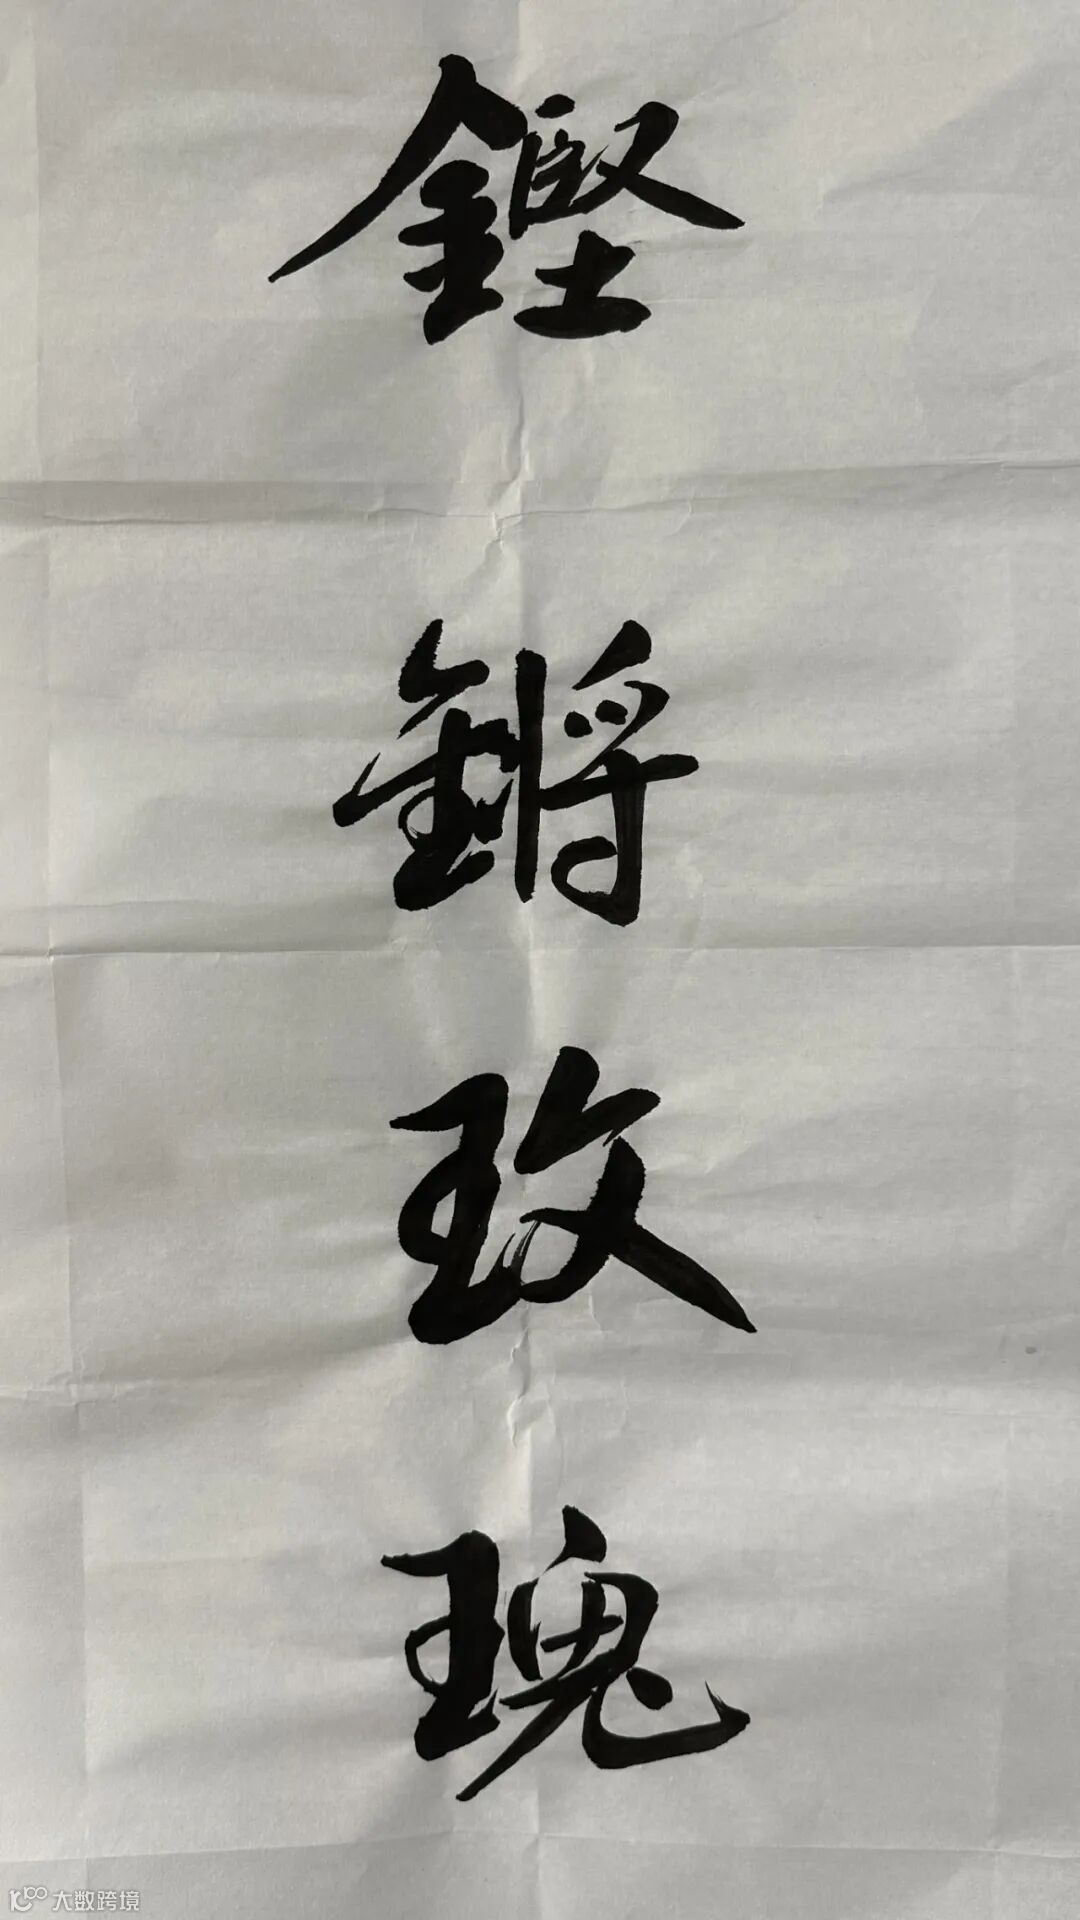 鏗
鏘
玫
瑰
大数跨境